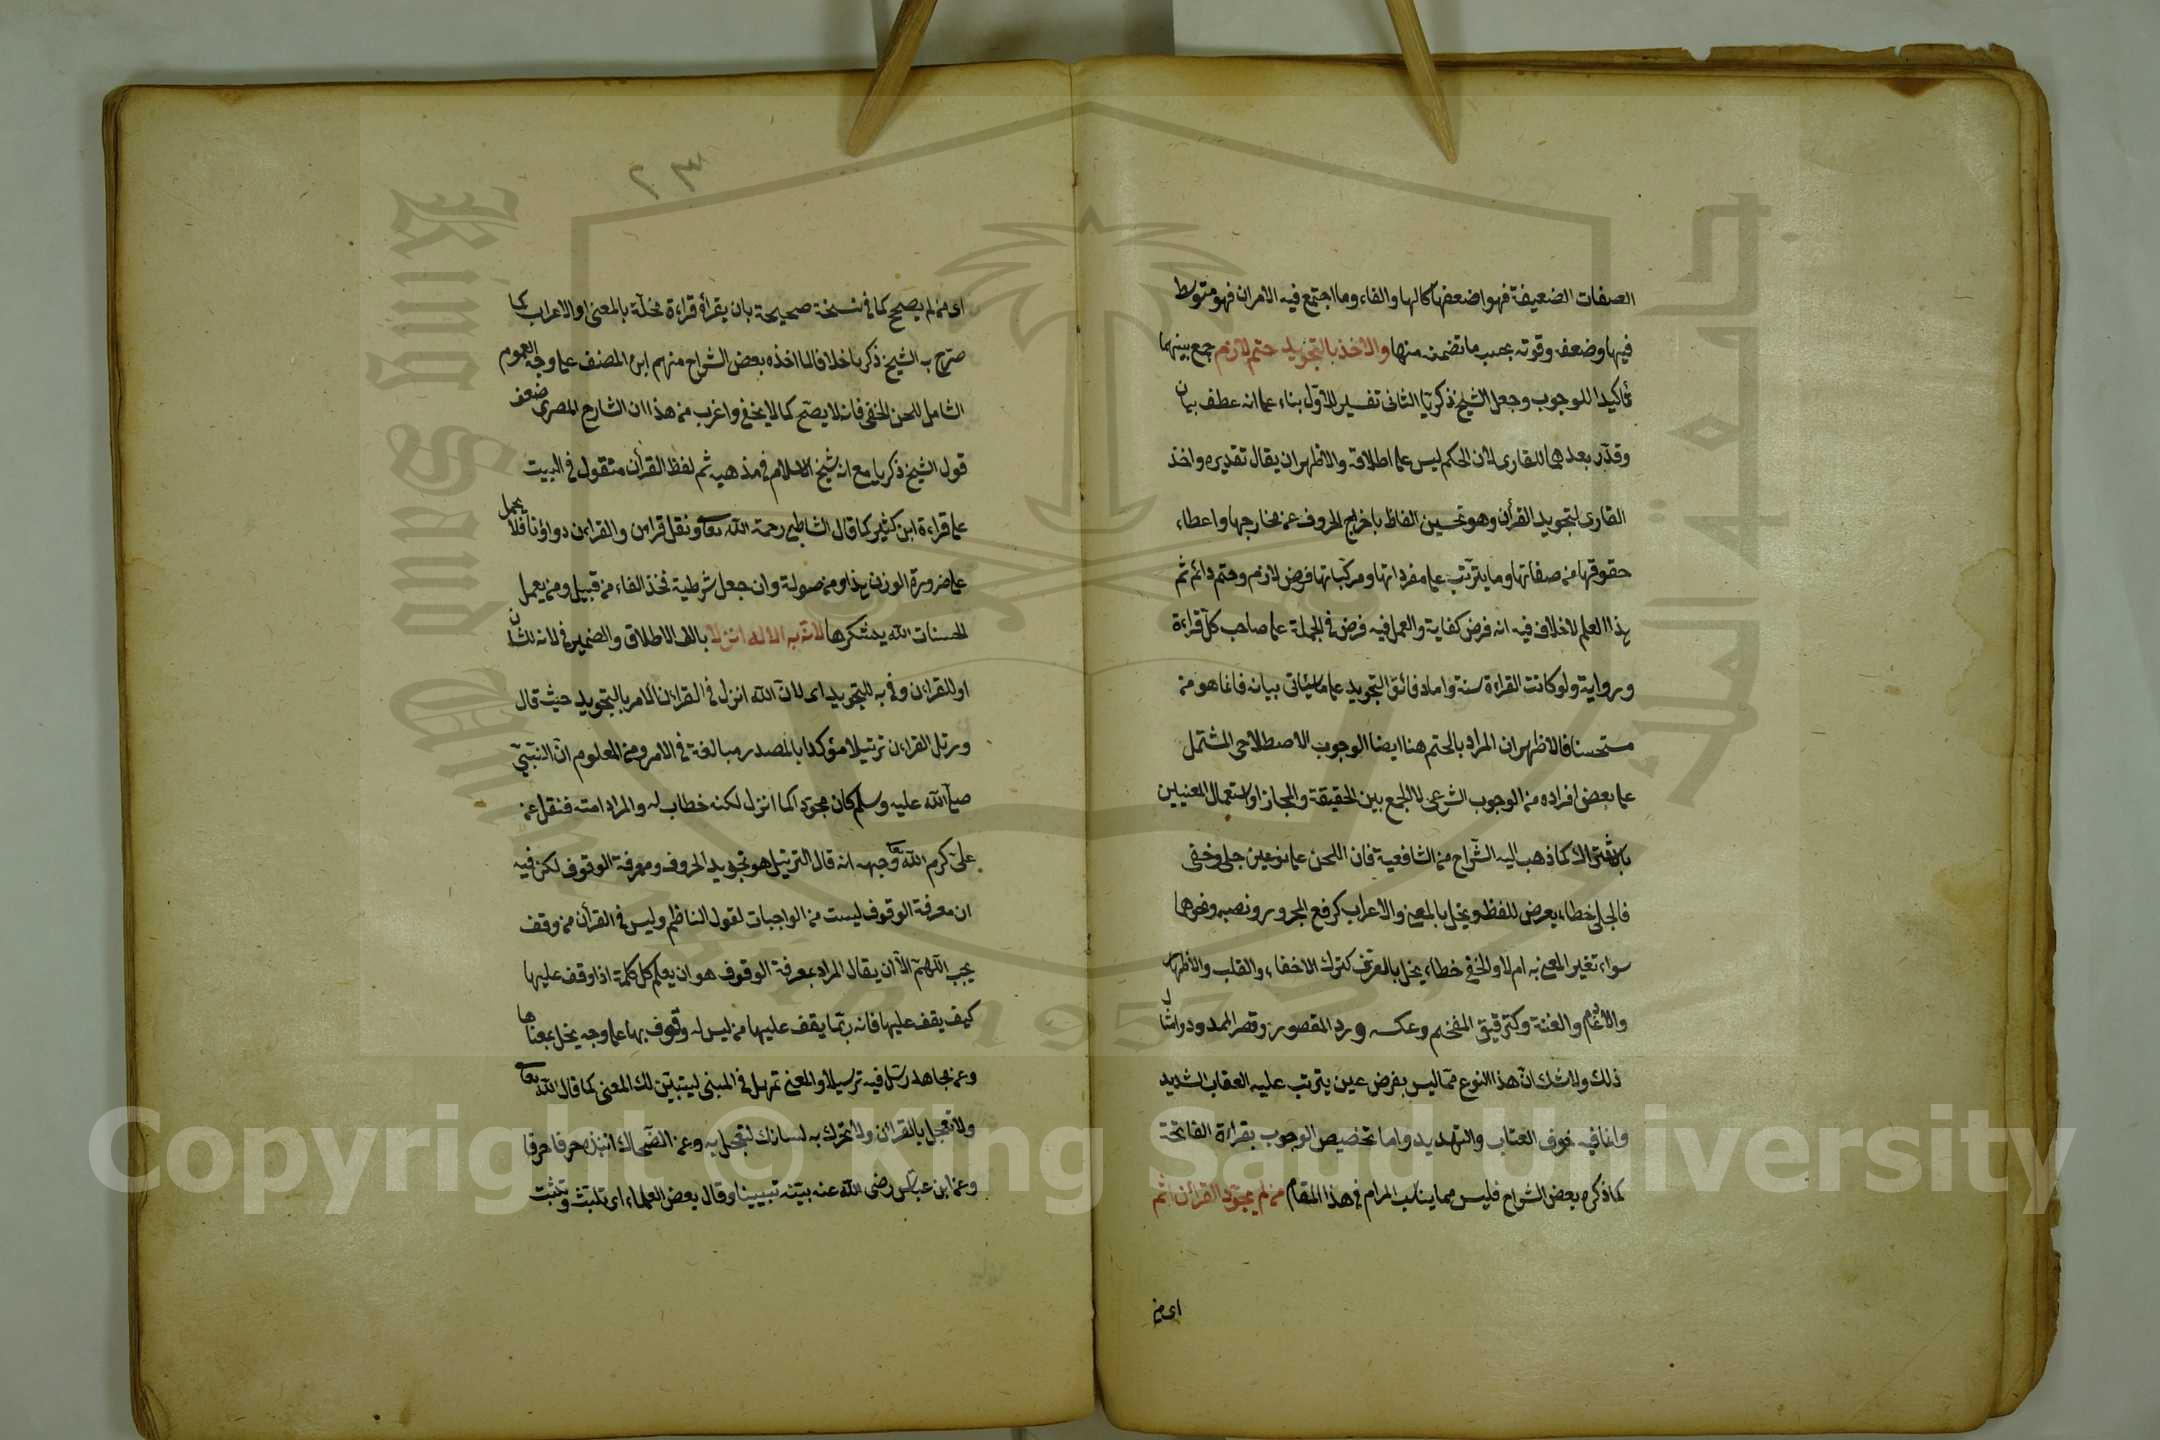 الصفات الضعيفة فهو اضعفها كالهاء والفاء وما اجتمع فيه الامران فهو متوسط
فيها وضعفه وقوته بحسب ما تضمنه منها والاخذ بالتجويد حتم لازم جمع بينهما
تأكيدا للوجوب وجعل الشيخ ذكريا الثانى تفسير للاول بناء على انه عطف بيان
وقدّر بعدهما للقارى لان الحكم ليس على اطلاقه والاظهر ان يقال تقديره واخذ
القارى لتجويد القرأن وهو تحسين الفاظه باخراج الحروف عن مخارجها واعطاء
حقوقها من صفاتها وما يترتب على مفرداتها ومركباتها فرض لازم وحتم دائم ثم
هذا العلم لاخلاف فيه انه فرض كفاية والعمل فيه فرض فى الجملة على صاحب كل قراءة
ورواية ولو كانت القراءة سنة واما دقائق التجويد على ما سيأتى بيانه فانما هو من
مستحسنا فالاظهر ان المراد بالحتم هنا ايضا الوجوب الاصطلاحى المشتمل
على بعض افراده من الوجوب الشرعى لا الجمع بين الحقيقة والمجاز او استعمال المعنيين
بالاشتراك كما ذهب اليه الشراح من الشافعية فان اللحن على نوعين جلى وخفى
فالجلى خطاء يعرض للفظ ويخل بالمعنى والاعراب كرفع المجرور ونصبه ونحوها
سواء تغير المعنى به ام لا والخفى خطاء يخل بالعرف كترك الاخفاء والقلب والاظهار
والادغام والغنة وكترقيق المفخم وعكسه ورد المقصور وقصر الممدود وامثال
ذلك ولاشك ان هذا النوع مما ليس بفرض عين يترتب عليه العقاب الشديد
وانما فيه خوف العتاب والتهديد واما تخصيص الوجوب بقراءة الفاتحة
كما ذكره بعض الشراح فليس مما يناسب المرام فى هذا المقام من لم يجوّد القرأن اثم
اى من
٢٣
اى من لم يصحح كما فى نسخة صحيحة بان يقرأه قراءة مخلّة بالمعنى او الاعراب كما
صرّح به الشيخ ذكريا خلافا لما اخذه بعض الشراح منهم ابن المصنف على وجه العموم
الشامل للحن الخفى فانه لا يصح كما لا يخفى واغرب من هذا ان الشارح المصرى ضعف
قول الشيخ ذكريا مع انه شيخ الاسلام فى مذهبه ثم لفظ القرأن منقول فى البيت
على قراءة ابن كثير كما قال الشاطبى رحمة الله تعالى ونقل قران والقران دواؤنا فلا يحمل
على ضرورة الوزن هذا ومن موصولة وان جعل شرطية فحذف الفاء من قبيل ومن يعمل
الحسنات الله يشكرها لانه به الاله انزلا بالف الاطلاق والضمير فى لانه للشان
او للقران وفى به للتجويد اى لان الله انزل فى القرأن الامر بالتجويد حيث قال
ورتل القران ترتيلا مؤكدا بالمصدر مبالغة فى الامر ومن المعلوم ان النبى
صلى الله عليه وسلم كان مجوّدا كما انزل لكنه خطاب له والمراد امته فنقل عن
على كرم الله تعالى وجهه انه قال الترتيل هو تجويد الحروف ومعرفة الوقوف لكن فيه
ان معرفة الوقوف ليست من الواجبات لقول الناظم وليس فى القرأن من وقف
يجب اللهم الا ان يقال المراد بمعرفة الوقوف هو ان يعلم كل كلمة اذا وقف عليها
كيف يقف عليها فانه ربما يقف عليها من ليس له وقوف بها على وجه يخل بمعناها
وعن مجاهد رتل فيه ترسيلا والمعنى تمهل فى المبنى ليتبين لك المعنى كما قال الله تعالى
ولا تعجل بالقرأن ولا تحرك به لسانك لتعجل به وعن الضحاك انبذه حرفا حرفا
وعن ابن عباس رضى الله عنه بيّنه تبيينا وقال بعض العلماء اى تلبث وتثبت
Copyright © King Saud University